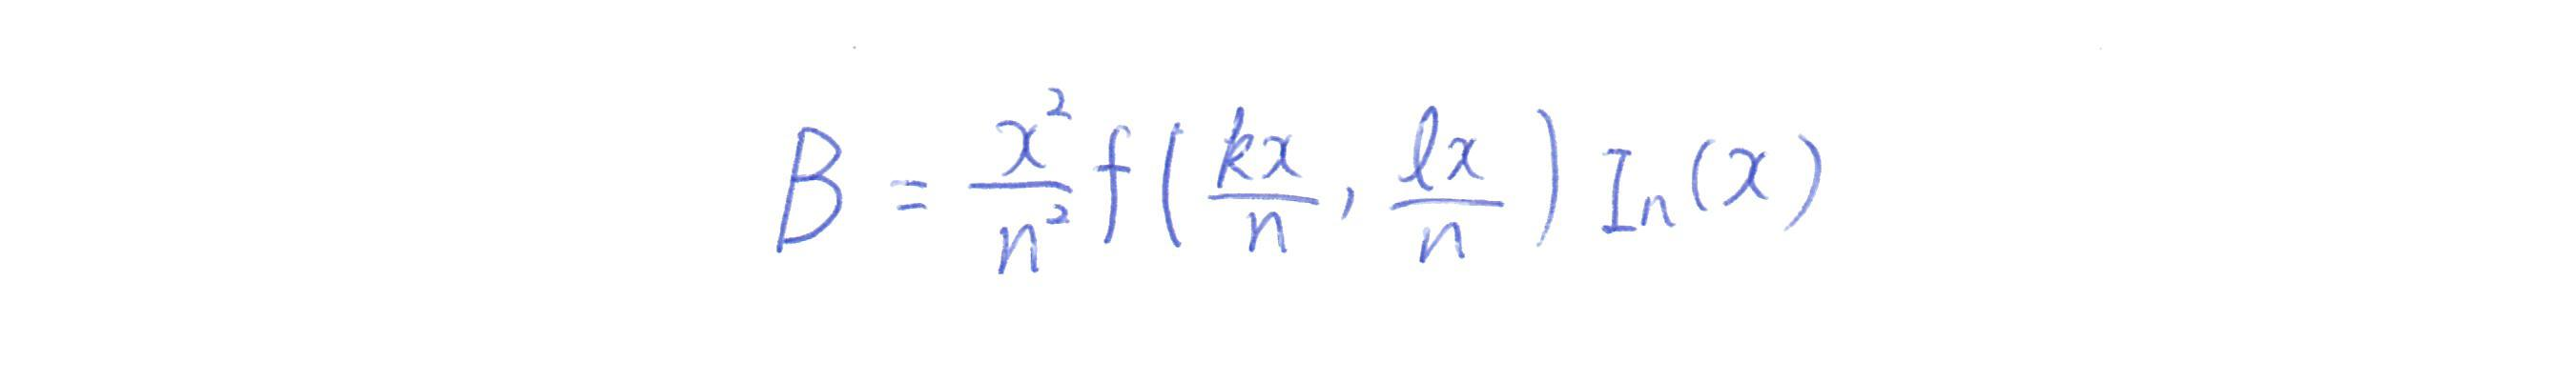 $B = \frac{x^2}{n^2} f\left(\frac{kx}{n}, \frac{lx}{n}\right) I_n(x)$